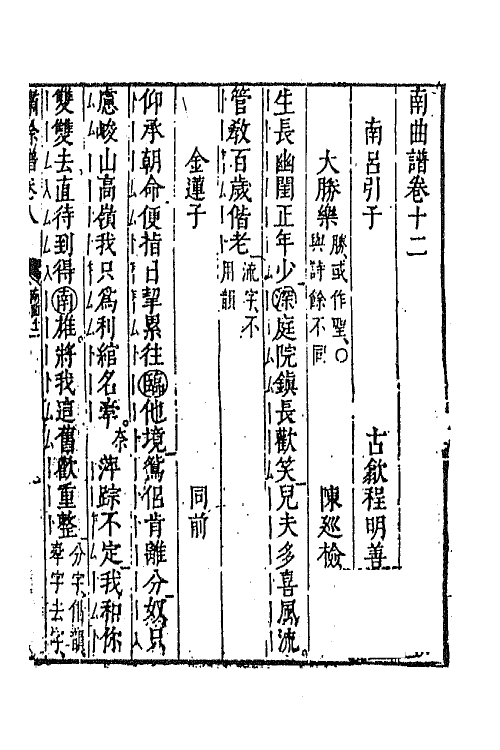 南曲譜卷十二
南呂引子 古歙程明善
大勝樂 勝或作聖○與詩餘不同 陳巡檢
生長幽閨正年少深庭院鎮長歡笑兒夫多喜風流
管教百歲偕老 流字不用韻
金蓮子 同前
仰承朝命便指日挈累往臨他境鴛侶肯離分奴只
慮峻山高嶺我只爲利綰名牽奈萍踪不定我和你
雙雙去直待到得南雄將我這舊歡重整 分字借韻牽字去字
嘯餘譜卷八